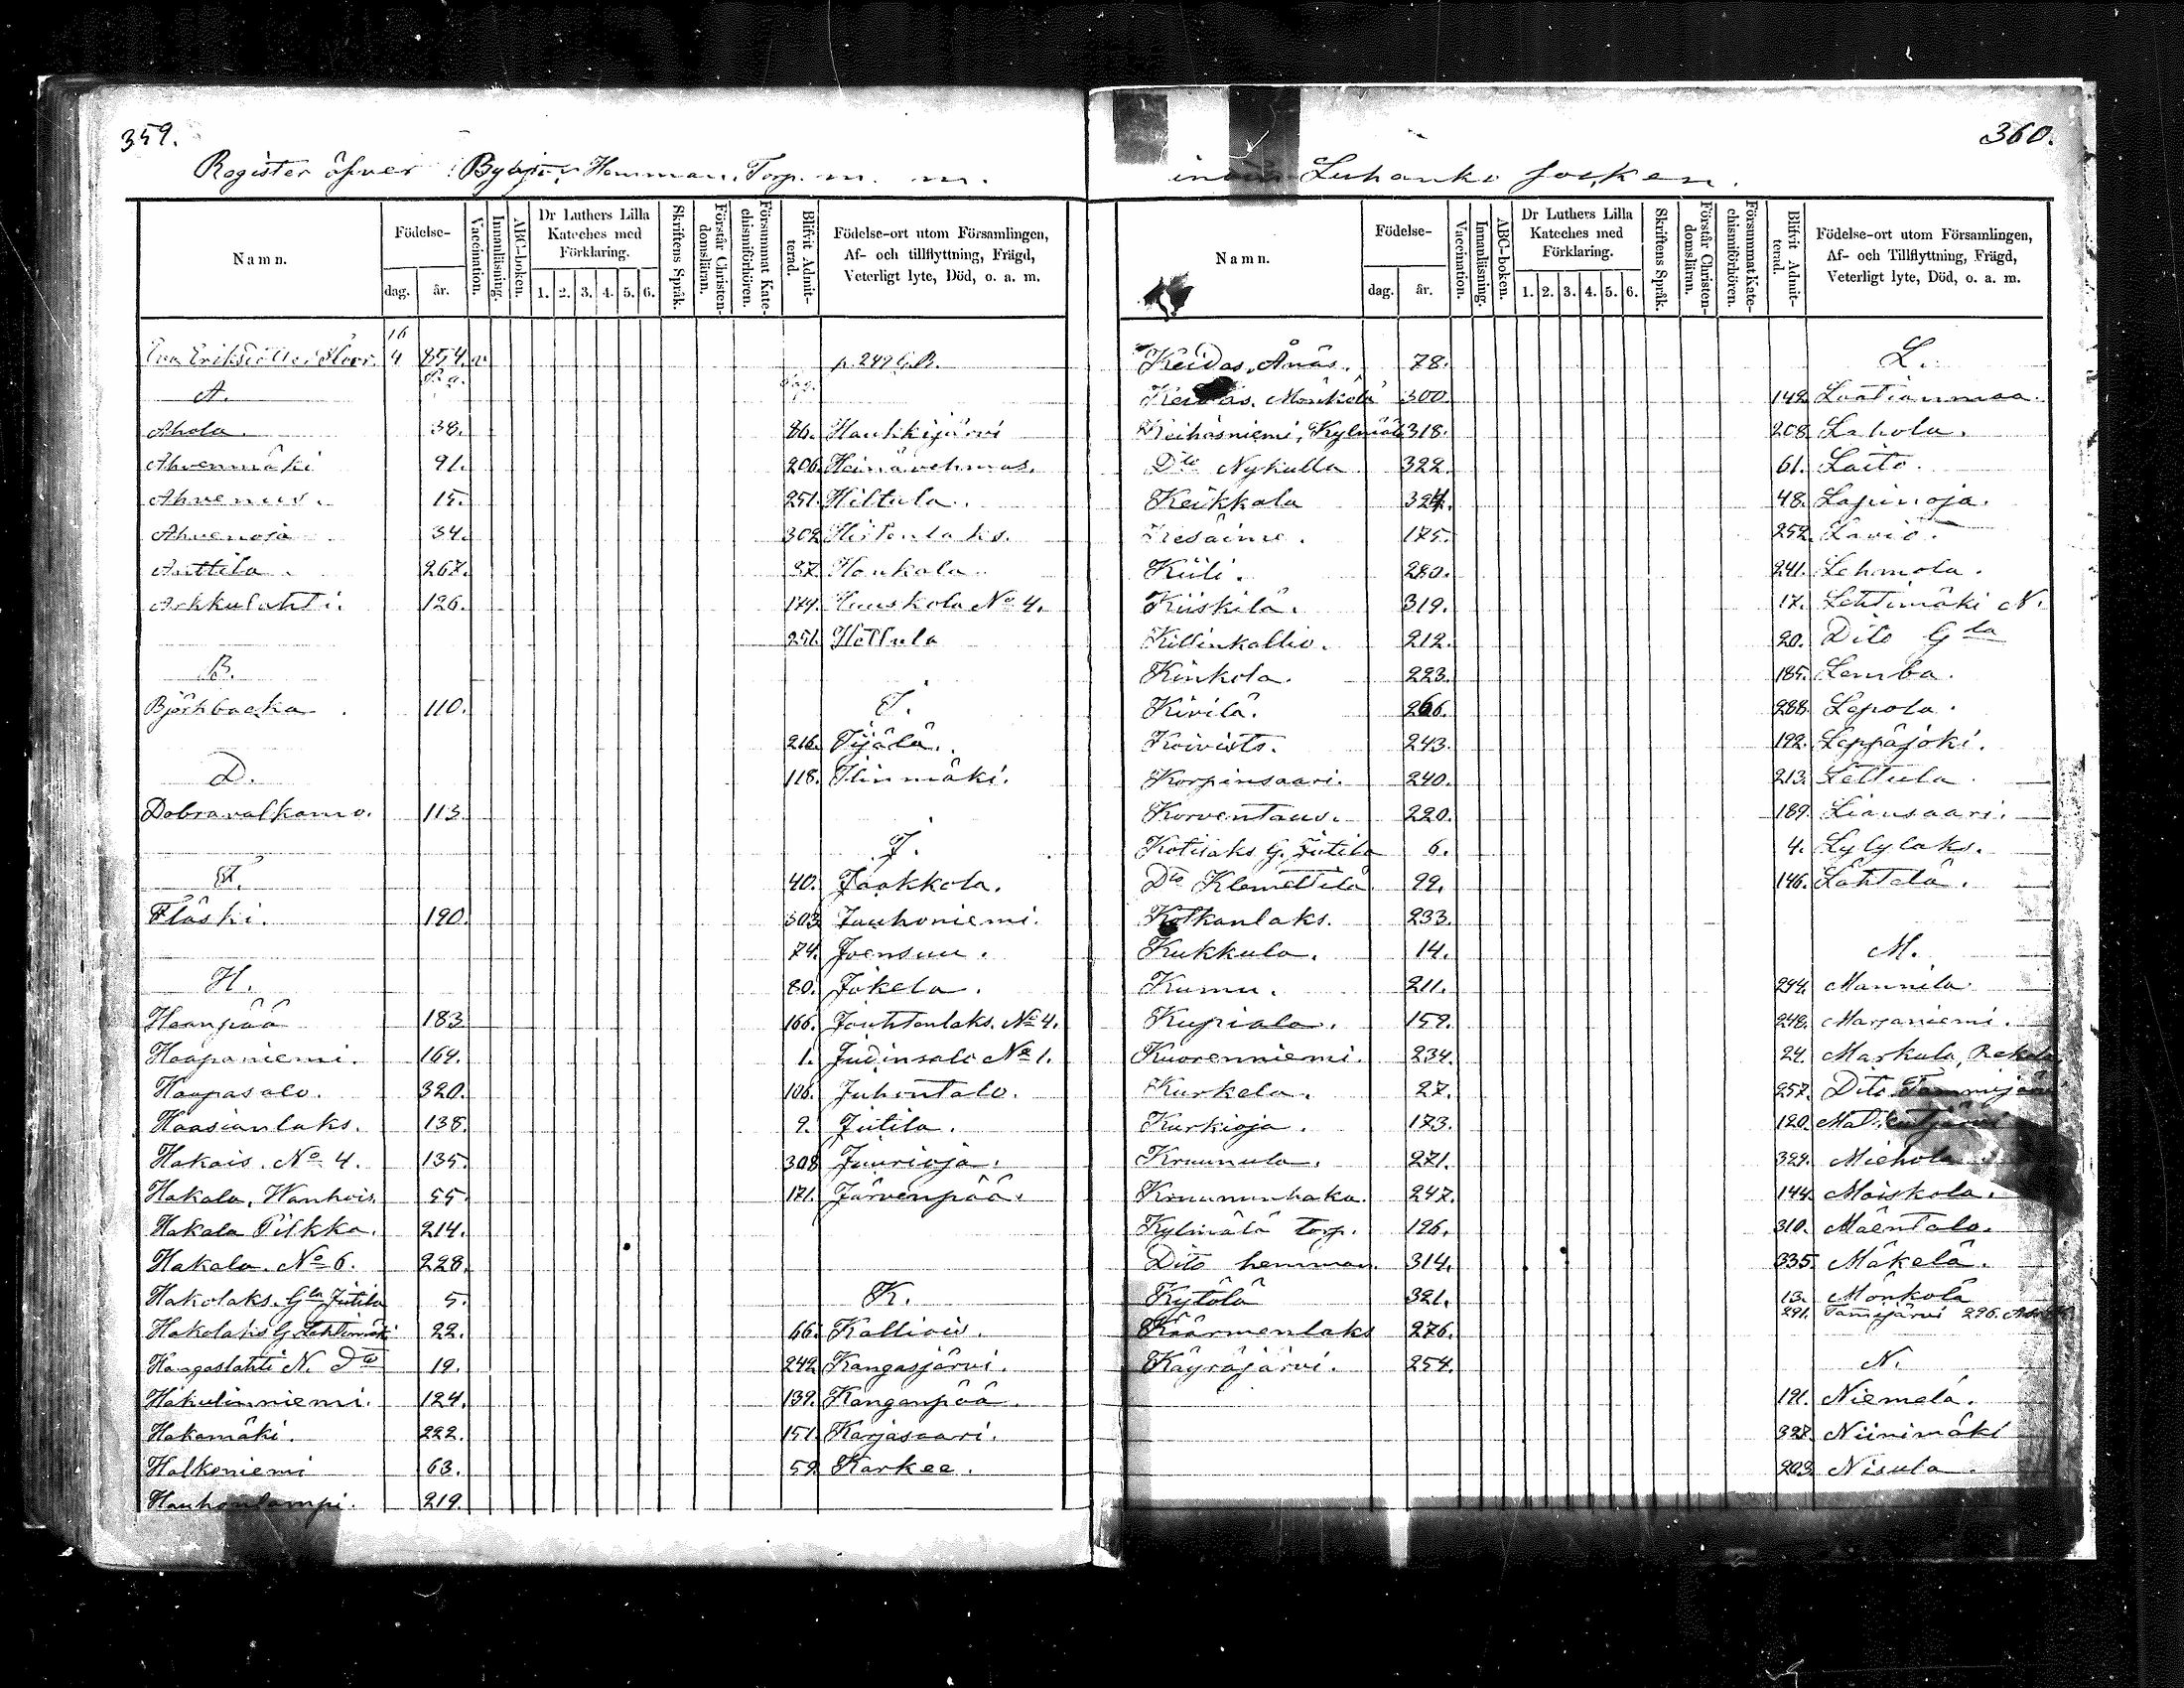 359.
Register öfver Byar, Hemman, Torp m. m.
Namn.
Födelse-
dag.
år.
Vaccination.
Innanläsning.
ABC-boken.
Dr Luthers Lilla
Kateches med
Förklaring.
1. 2. 3. 4. 5. 6.
Skriftens Språk.
Förstår Christen-
domsläran.
Försummat Kate-
chismiförhören.
Blifvit Admit-
terad.
Födelse-ort utom Församlingen,
Af- och tillflyttning, Frägd,
Veterligt lyte, Död, o. a. m.
16
4 854. p. 249
A.
Ahola. 38.
Ahvenmäki 91.
Ahvenus. 15.
Ahvenoja 34.
Anttila. 267.
Arkkulahti. 126.
B.
Björkbacka. 110.
D.
Dobravalkamo. 113.
F.
Fläski. 190.
H.
Haanpää 183.
Haapaniemi. 164.
Haapasalo. 320.
Haasianlaks. 138.
Hakais. No 4. 135.
Hakala, Wanhois. 55.
Hakala Pilkka. 214.
Hakala. No 6. 228.
Hakolaks. Gla Jutila 5.
Hakolaks G. Lehtimäki 22.
Kangaslahti N. Dto 19.
Hakulinniemi. 124.
Hakamäki. 222.
Halkoniemi 63.
Hauhonlampi. 219.
86. Haukkijärvi
206. Heinävehmas.
251. Hiltula.
302. Hietenlaks.
37. Honkala.
174. Huuskola No 4.
251. Hettula
I.
216. Iijälä.
118. Ilinmäki.
J.
40. Jaakkola.
303. Jauhoniemi.
74. Joensuu.
80. Jokela.
166. Jouhtenlaks. No 4.
1. Judinsalo No 1.
106. Juhontalo.
9. Jutila.
308. Juurioja.
171. Järvenpää.
K.
66. Kalliois.
242. Kangasjärvi.
139. Kanganpää.
151. Karjasaari.
59. Karkee.
360.
inom Luhanko socken.
Namn.
Födelse-
dag.
år.
Vaccination.
Innanläsning.
ABC-boken.
Dr Luthers Lilla
Kateches med
Förklaring.
1. 2. 3. 4. 5. 6.
Skriftens Språk.
Förstår Christen-
domsläran.
Försummat Kate-
chismiförhören.
Blifvit Admit-
terad.
Födelse-ort utom Församlingen,
Af- och Tillflyttning, Frägd,
Veterligt lyte, Död, o. a. m.
Keidas, Ånäs. 78.
Keidas. Mönkölä 300.
Keihäsniemi, Kylmälä 318.
Dto Nykulla 322.
Keikkala 324.
Kesäime. 175.
Kiili. 280.
Kiiskilä. 319.
Killinkallio. 212.
Kinkola. 223.
Kivilä. 266.
Koivisto. 243.
Korpinsaari. 240.
Korventaus. 220.
Kotisaks G. Jutila 6.
Dto Klemettilä. 99.
Kotkanlaks. 233.
Kukkula. 14.
Kumu. 211.
Kupiala. 159.
Kuorenniemi. 234.
Kurkela. 27.
Kurkioja. 173.
Kruunula. 271.
Kruununhaka. 247.
Kylmälä torp. 196.
Dito hemman. 314.
Kytölä 321.
Käärmenlaks 276.
Käyräjärvi. 254.
L.
142. Laatianmaa.
208. Lahola.
61. Laito.
48. Lapinoja.
252. Lavio.
241. Lehmola.
17. Lehtimäki N.
20. Dito Gla
185. Lemba.
288. Lepola.
192. Leppäjoki.
213. Lettula
189. Liansaari.
4. Lylylaks.
146. Lähtelä.
M.
294. Mannila
248. Marjaniemi.
24. Markula, Rekola
257. Dito Tammijärvi
120.
329. Miehola
144. Moiskola.
310. Mäentalo.
335. Mäkelä.
13. Mönkölä
291. Tamijärvi 296.
N.
191. Niemelä.
327. Niinimäki
203. Nisula.